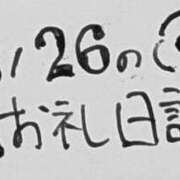 /26の(
お礼日記